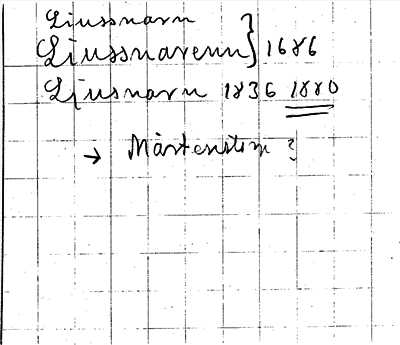 Ljussnarn
Ljussnarenn } 1686
Ljusnarn 1836 1880
→ Mårtensten ?